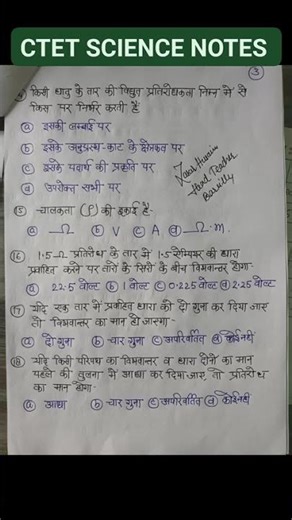 CTET SCIENCE NOTES
③
किसी धातु के तार की विद्युत प्रतिरोधकता निम्न में से
किस पर निर्भर करती है
ⓐ इसकी लम्बाई पर
ⓑ इसके अनुप्रस्थ-काट के क्षेत्रफल पर
ⓒ इसके पदार्थ की प्रकृति पर
ⓓ उपरोक्त सभी पर
Head Teacher
Bareilly
⑮ चालकता (ρ) की इकाई है-
ⓐ Ω ⓑ V ⓒ A ⓓ Ω·m.
⑯ 1.5Ω प्रतिरोध के तार में 1.5 ऐम्पियर की धारा
प्रवाहित करने पर तारों के सिरों के बीच विभवान्तर होगा-
ⓐ 22.5 वोल्ट ⓑ 1 वोल्ट ⓒ 0.225 वोल्ट ⓓ 2.25 वोल्ट
⑰ यदि एक तार में प्रवाहित धारा को दो गुना कर दिया जाए
तो विभवान्तर का मान हो जाएगा-
ⓐ दो गुना ⓑ चार गुना ⓒ अपरिवर्तित ⓓ कोई नहीं
⑱ यदि किसी परिपथ का विभवान्तर व धारा दोनों का मान
पहले की तुलना में आधा कर दिया जाए, तो प्रतिरोध
का मान होगा-
ⓐ आधा ⓑ चार गुना ⓒ अपरिवर्तित ⓓ कोई नहीं